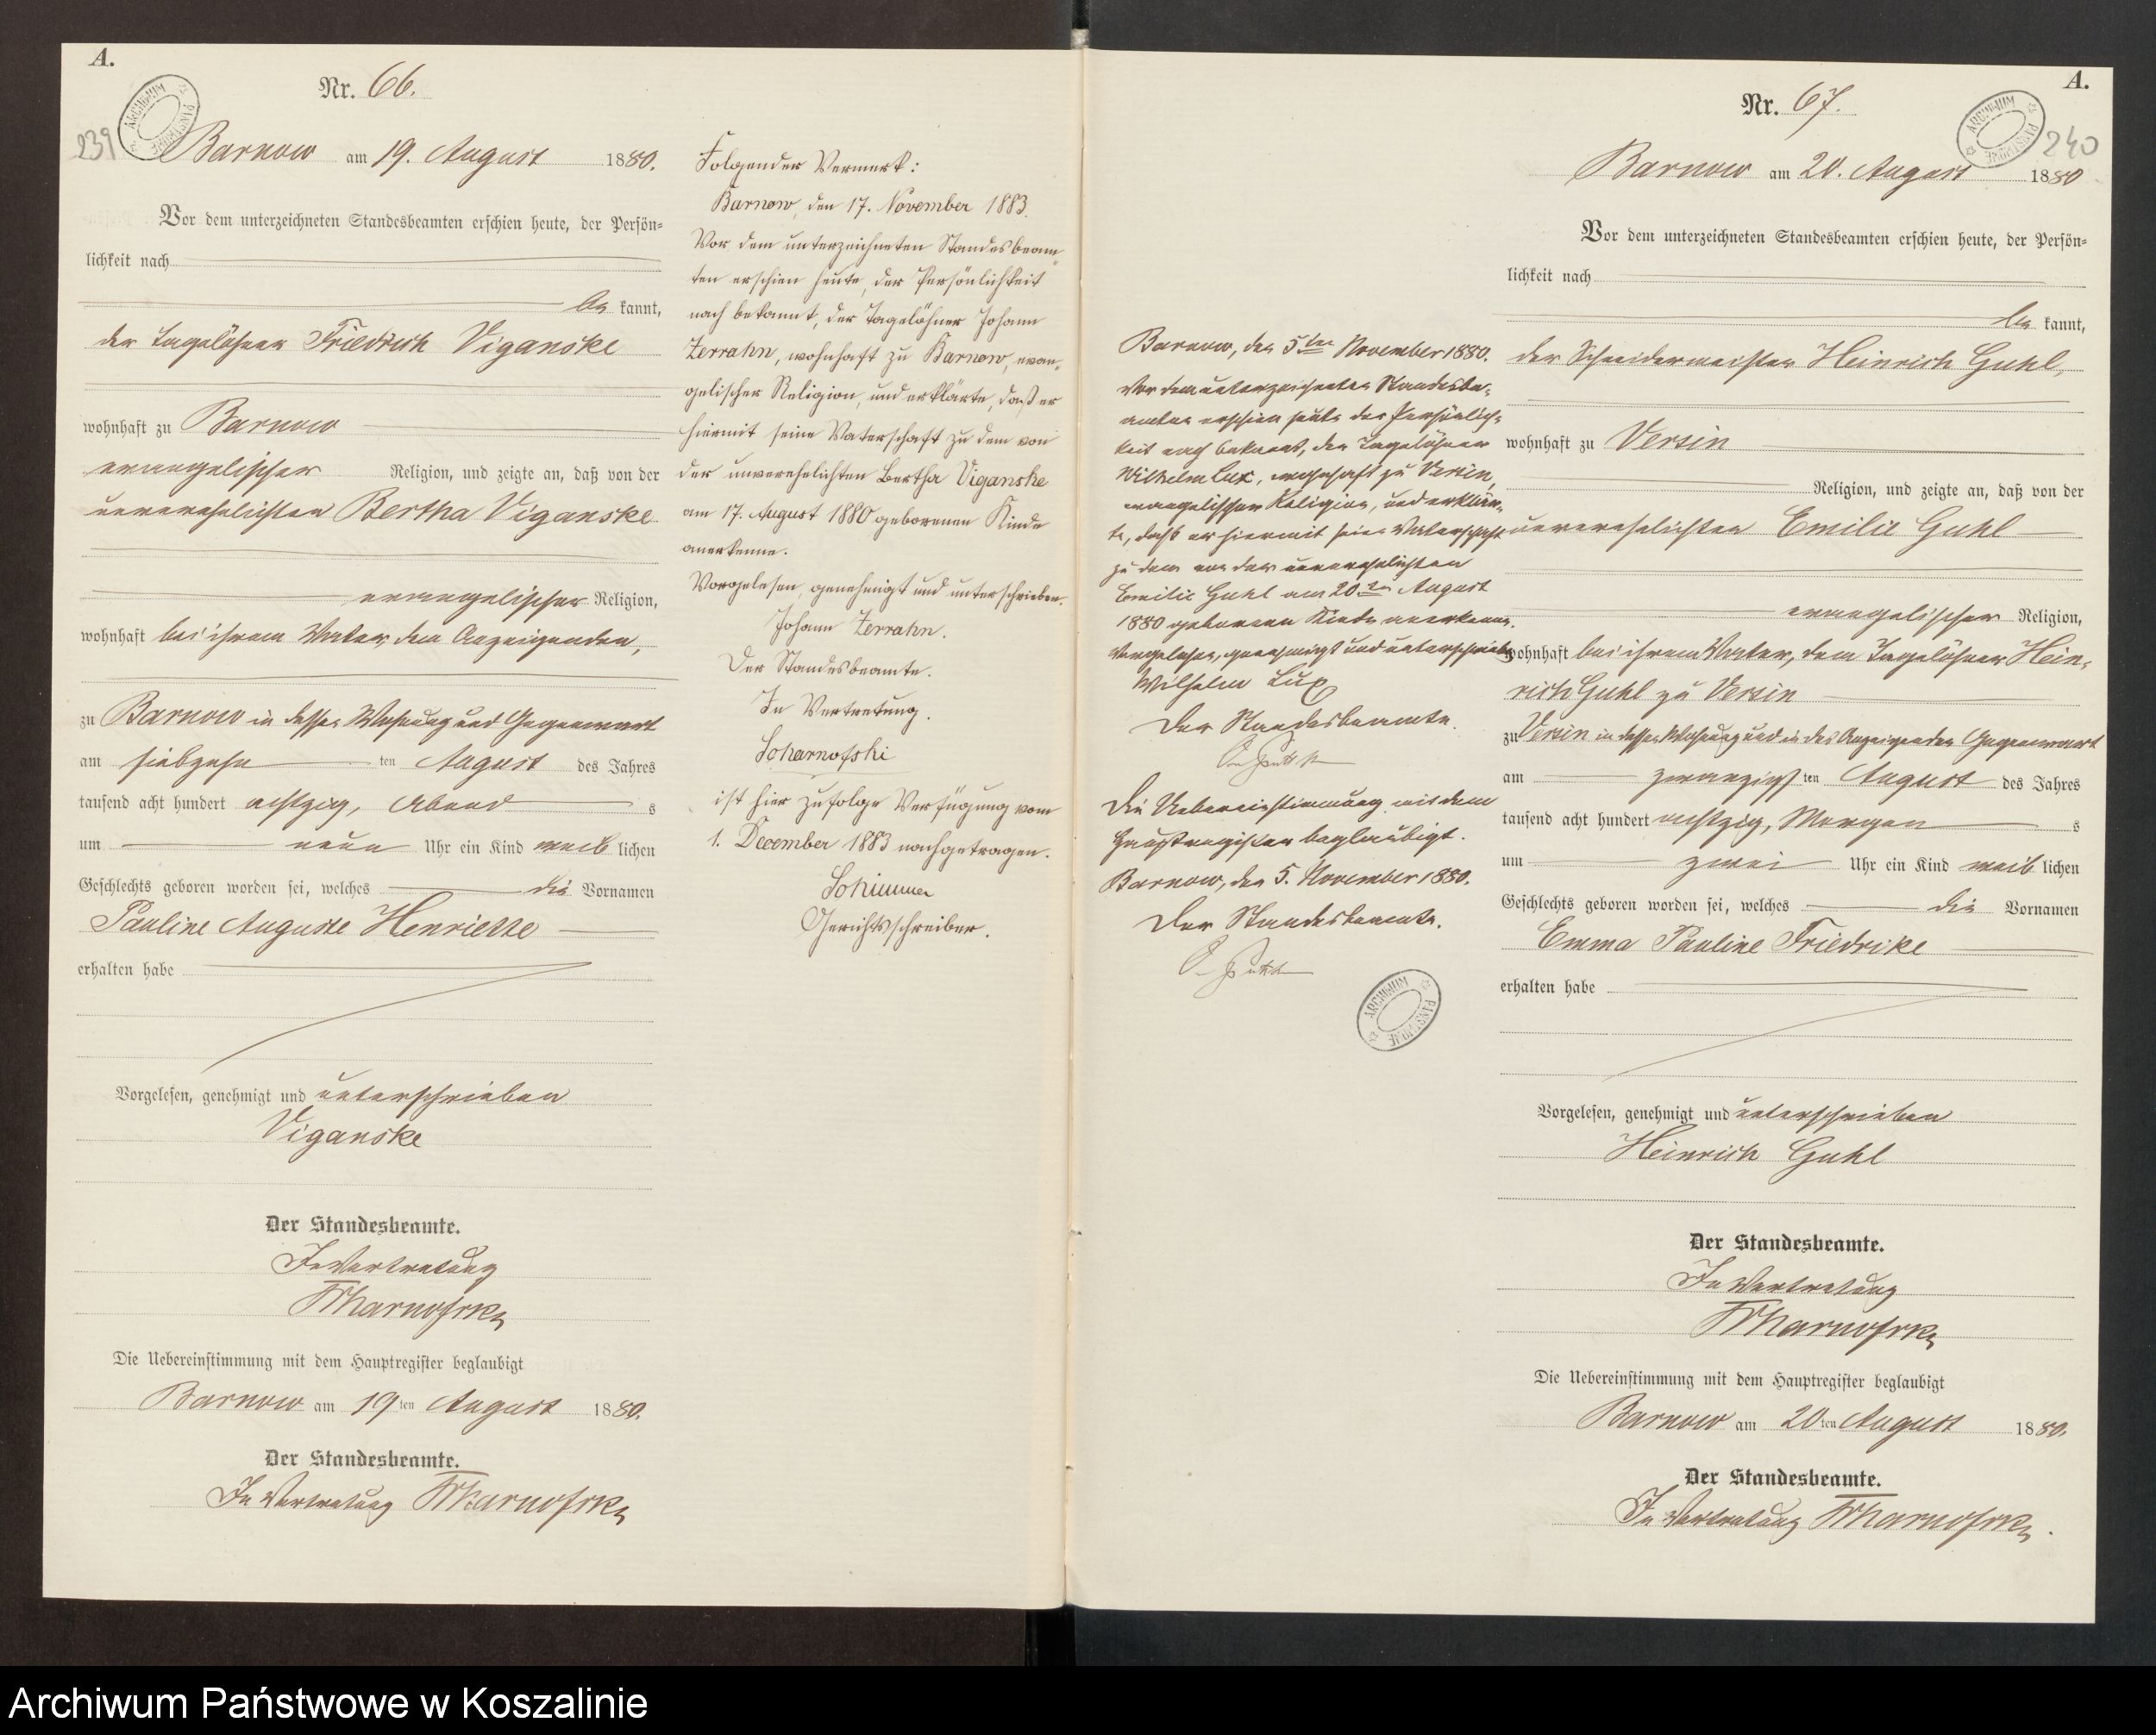 A.
Nr. 66.
239
ARCHIWUM PAŃSTWOWE
Barnow am 19. August 1880.
Vor dem unterzeichneten Standesbeamten erschien heute, der Persön-
lichkeit nach
be kannt,
der Tagelöhner Friedrich Viganske
wohnhaft zu Barnow
evangelischer Religion, und zeigte an, daß von der
unverehelichten Bertha Viganske
evangelischer Religion,
wohnhaft bei ihrem Vater, dem Anzeigenden,
zu Barnow in dessen Wohnung und Gegenwart
am siebzehn ten August des Jahres
tausend acht hundert achtzig, Abend s
um neun Uhr ein Kind weib lichen
Geschlechts geboren worden sei, welches die Vornamen
Pauline Auguste Henriette
erhalten habe
Vorgelesen, genehmigt und unterschrieben
Viganske
Der Standesbeamte.
In Vertretung
Scharnofske
Die Uebereinstimmung mit dem Hauptregister beglaubigt
Barnow am 19 ten August 1880.
Der Standesbeamte.
In Vertretung Scharnofske
Folgender Vermerk:
Barnow, den 17. November 1883.
Vor dem unterzeichneten Standesbeam-
ten erschien heute, der Persönlichkeit
nach bekannt, der Tagelöhner Johann
Zerrahn, wohnhaft zu Barnow, evan-
gelischer Religion, und erklärte, daß er
hiermit seine Vaterschaft zu dem von
der unverehelichten Bertha Viganske
am 17. August 1880 geborenen Kinde
anerkenne.
Vorgelesen, genehmigt und unterschrieben.
Johann Zerrahn.
Der Standesbeamte.
In Vertretung.
Scharnofski
ist hier zufolge Verfügung vom
1. December 1883 nachgetragen.
Schimmer
Gerichtsschreiber.
Barnow, den 5ten November 1880.
Vor dem unterzeichneten Standesbe-
amten erschien heute der Persönlich-
keit nach bekannt, der Tagelöhner
Wilhelm Lux, wohnhaft zu Versin,
evangelischer Religion, und erklär-
te, daß er hiermit seine Vaterschaft
zu dem von der unverehelichten
Emilie Guhl am 20ten August
1880 geborenen Kinde anerkenne.
Vorgelesen, genehmigt und unterschrieben
Wilhelm Lux
Der Standesbeamte.
Die Uebereinstimmung mit dem
Hauptregister beglaubigt.
Barnow, den 5. November 1880.
Der Standesbeamte.
ARCHIWUM PAŃSTWOWE
A.
Nr. 67.
ARCHIWUM PAŃSTWOWE
240
Barnow am 20. August 1880
Vor dem unterzeichneten Standesbeamten erschien heute, der Persön-
lichkeit nach
be kannt,
der Schneidermeister Heinrich Guhl,
wohnhaft zu Versin
Religion, und zeigte an, daß von der
unverehelichten Emilie Guhl
evangelischer Religion,
wohnhaft bei ihrem Vater, dem Tagelöhner Hein-
rich Guhl zu Versin
zu Versin in dessen Wohnung und in des Anzeigenden Gegenwart
am zwanzigs ten August des Jahres
tausend acht hundert achtzig, Morgen s
um zwei Uhr ein Kind weib lichen
Geschlechts geboren worden sei, welches die Vornamen
Emma Pauline Friedrike
erhalten habe
Vorgelesen, genehmigt und unterschrieben
Heinrich Guhl
Der Standesbeamte.
In Vertretung
Scharnofske
Die Uebereinstimmung mit dem Hauptregister beglaubigt
Barnow am 20 ten August 1880.
Der Standesbeamte.
In Vertretung Scharnofske.
Archiwum Państwowe w Koszalinie